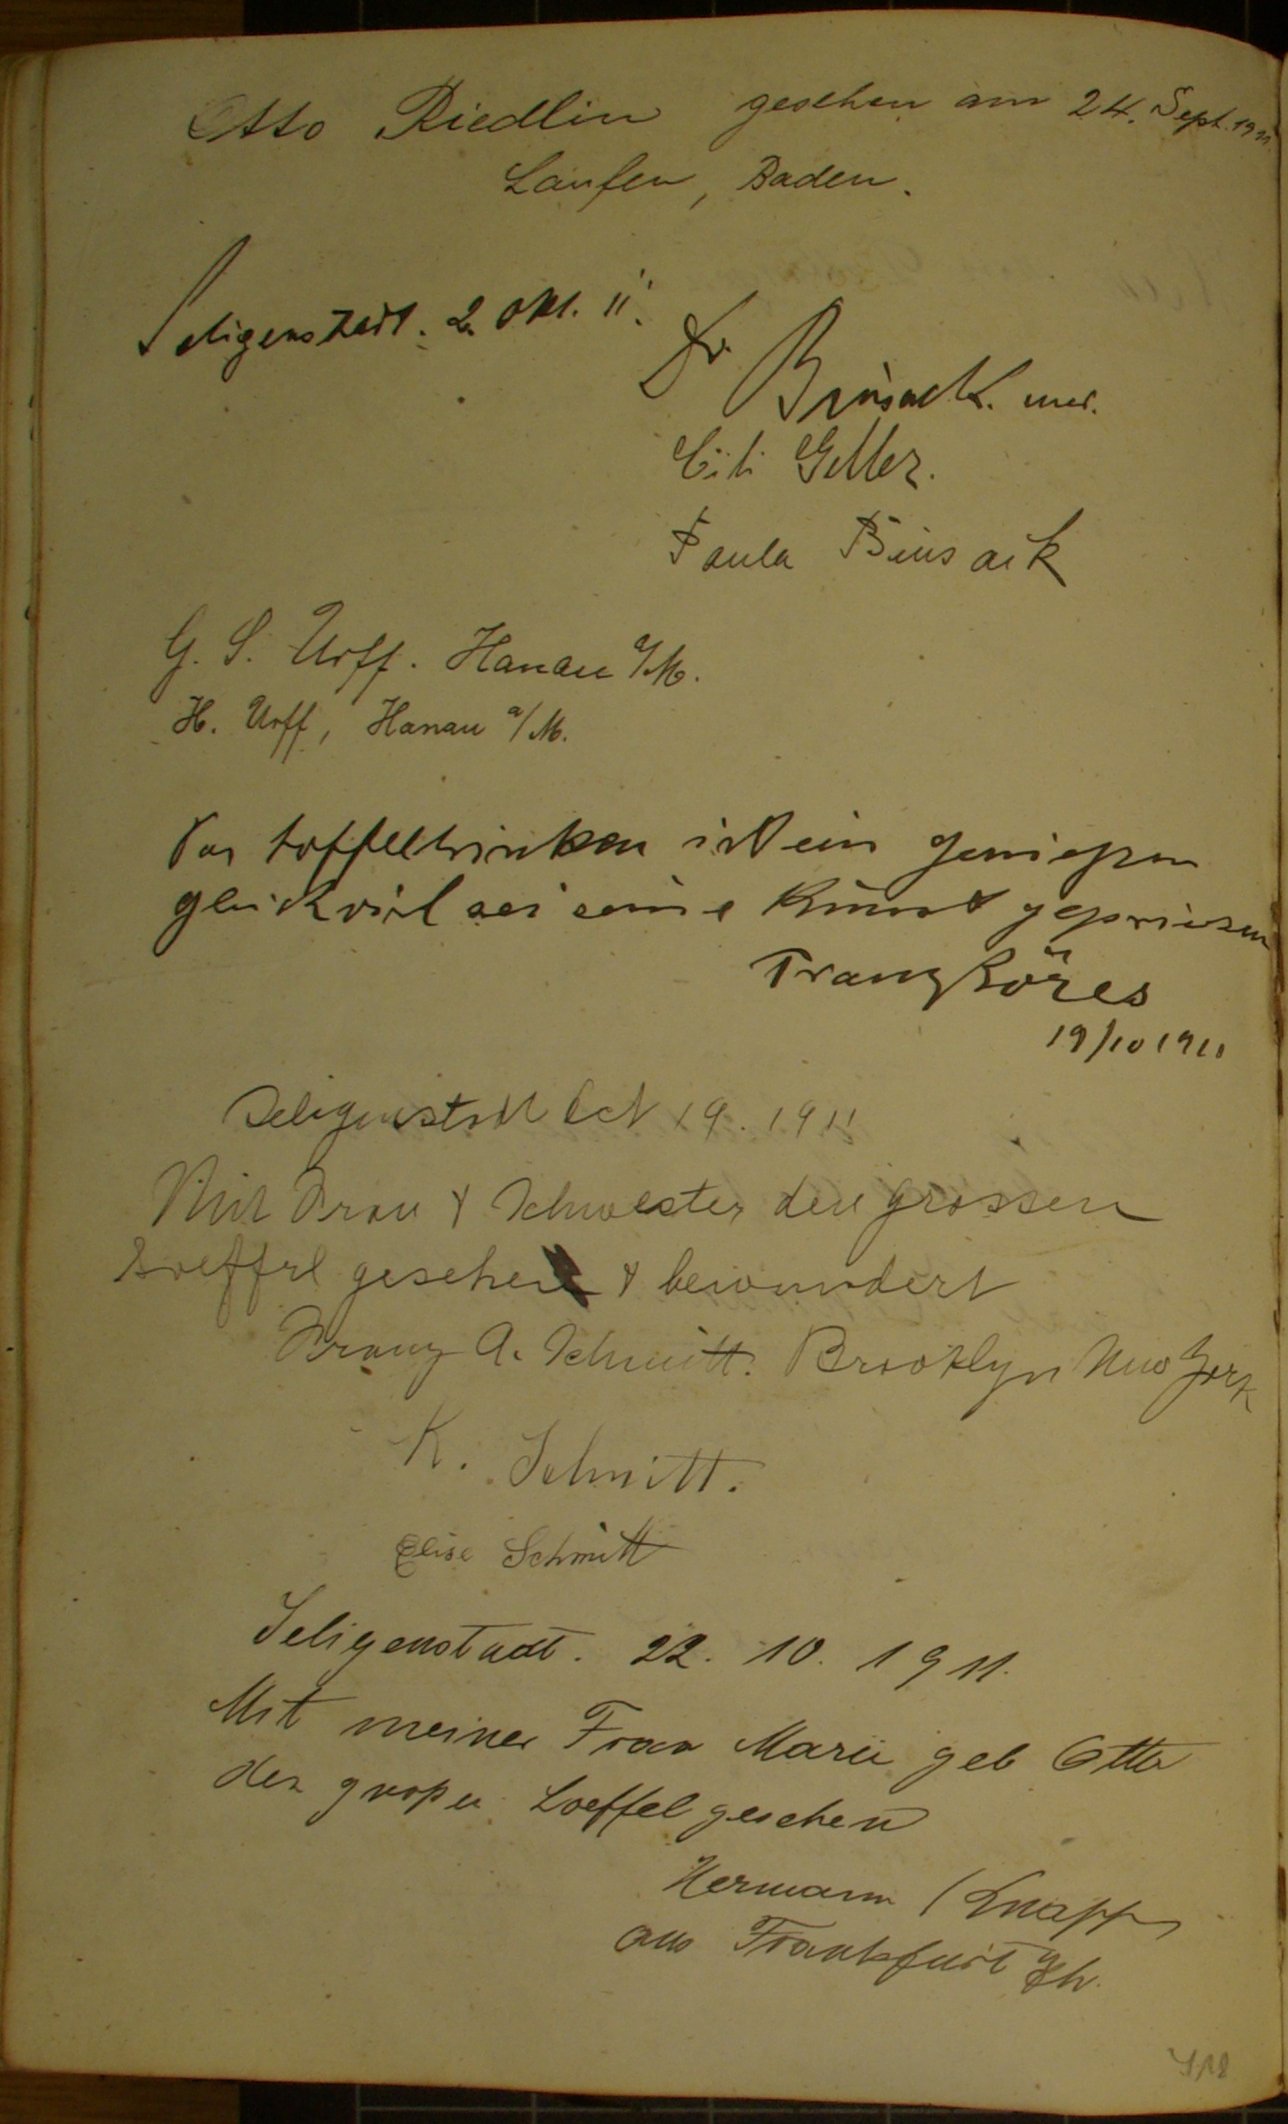 Otto Riedlin gesehen am 24. Sept. 1911
Laufen, Baden.
Seligenstadt. 2. Okt. 11.
Dr Binsack. med.
Cili Geller.
Paula Binsack
G. S. Urff. Hanau a/M.
H. Urff, Hanau a/M.
Das Löffeltrinken ist ein genießen
gleichviel sei seine Kunst gepriesen
Franz Köres
19/10 1911
Seligenstadt Oct 19. 1911
Mit Frau & Schwester den grossen
Loeffel gesehen & bewundert
Franz A. Schmitt. Brooklyn New York
K. Schmitt.
Elise Schmitt
Seligenstadt. 22. 10. 1911.
Mit meiner Frau Marie geb Otto
den großen Loeffel gesehen
Hermann Knapp
aus Frankfurt